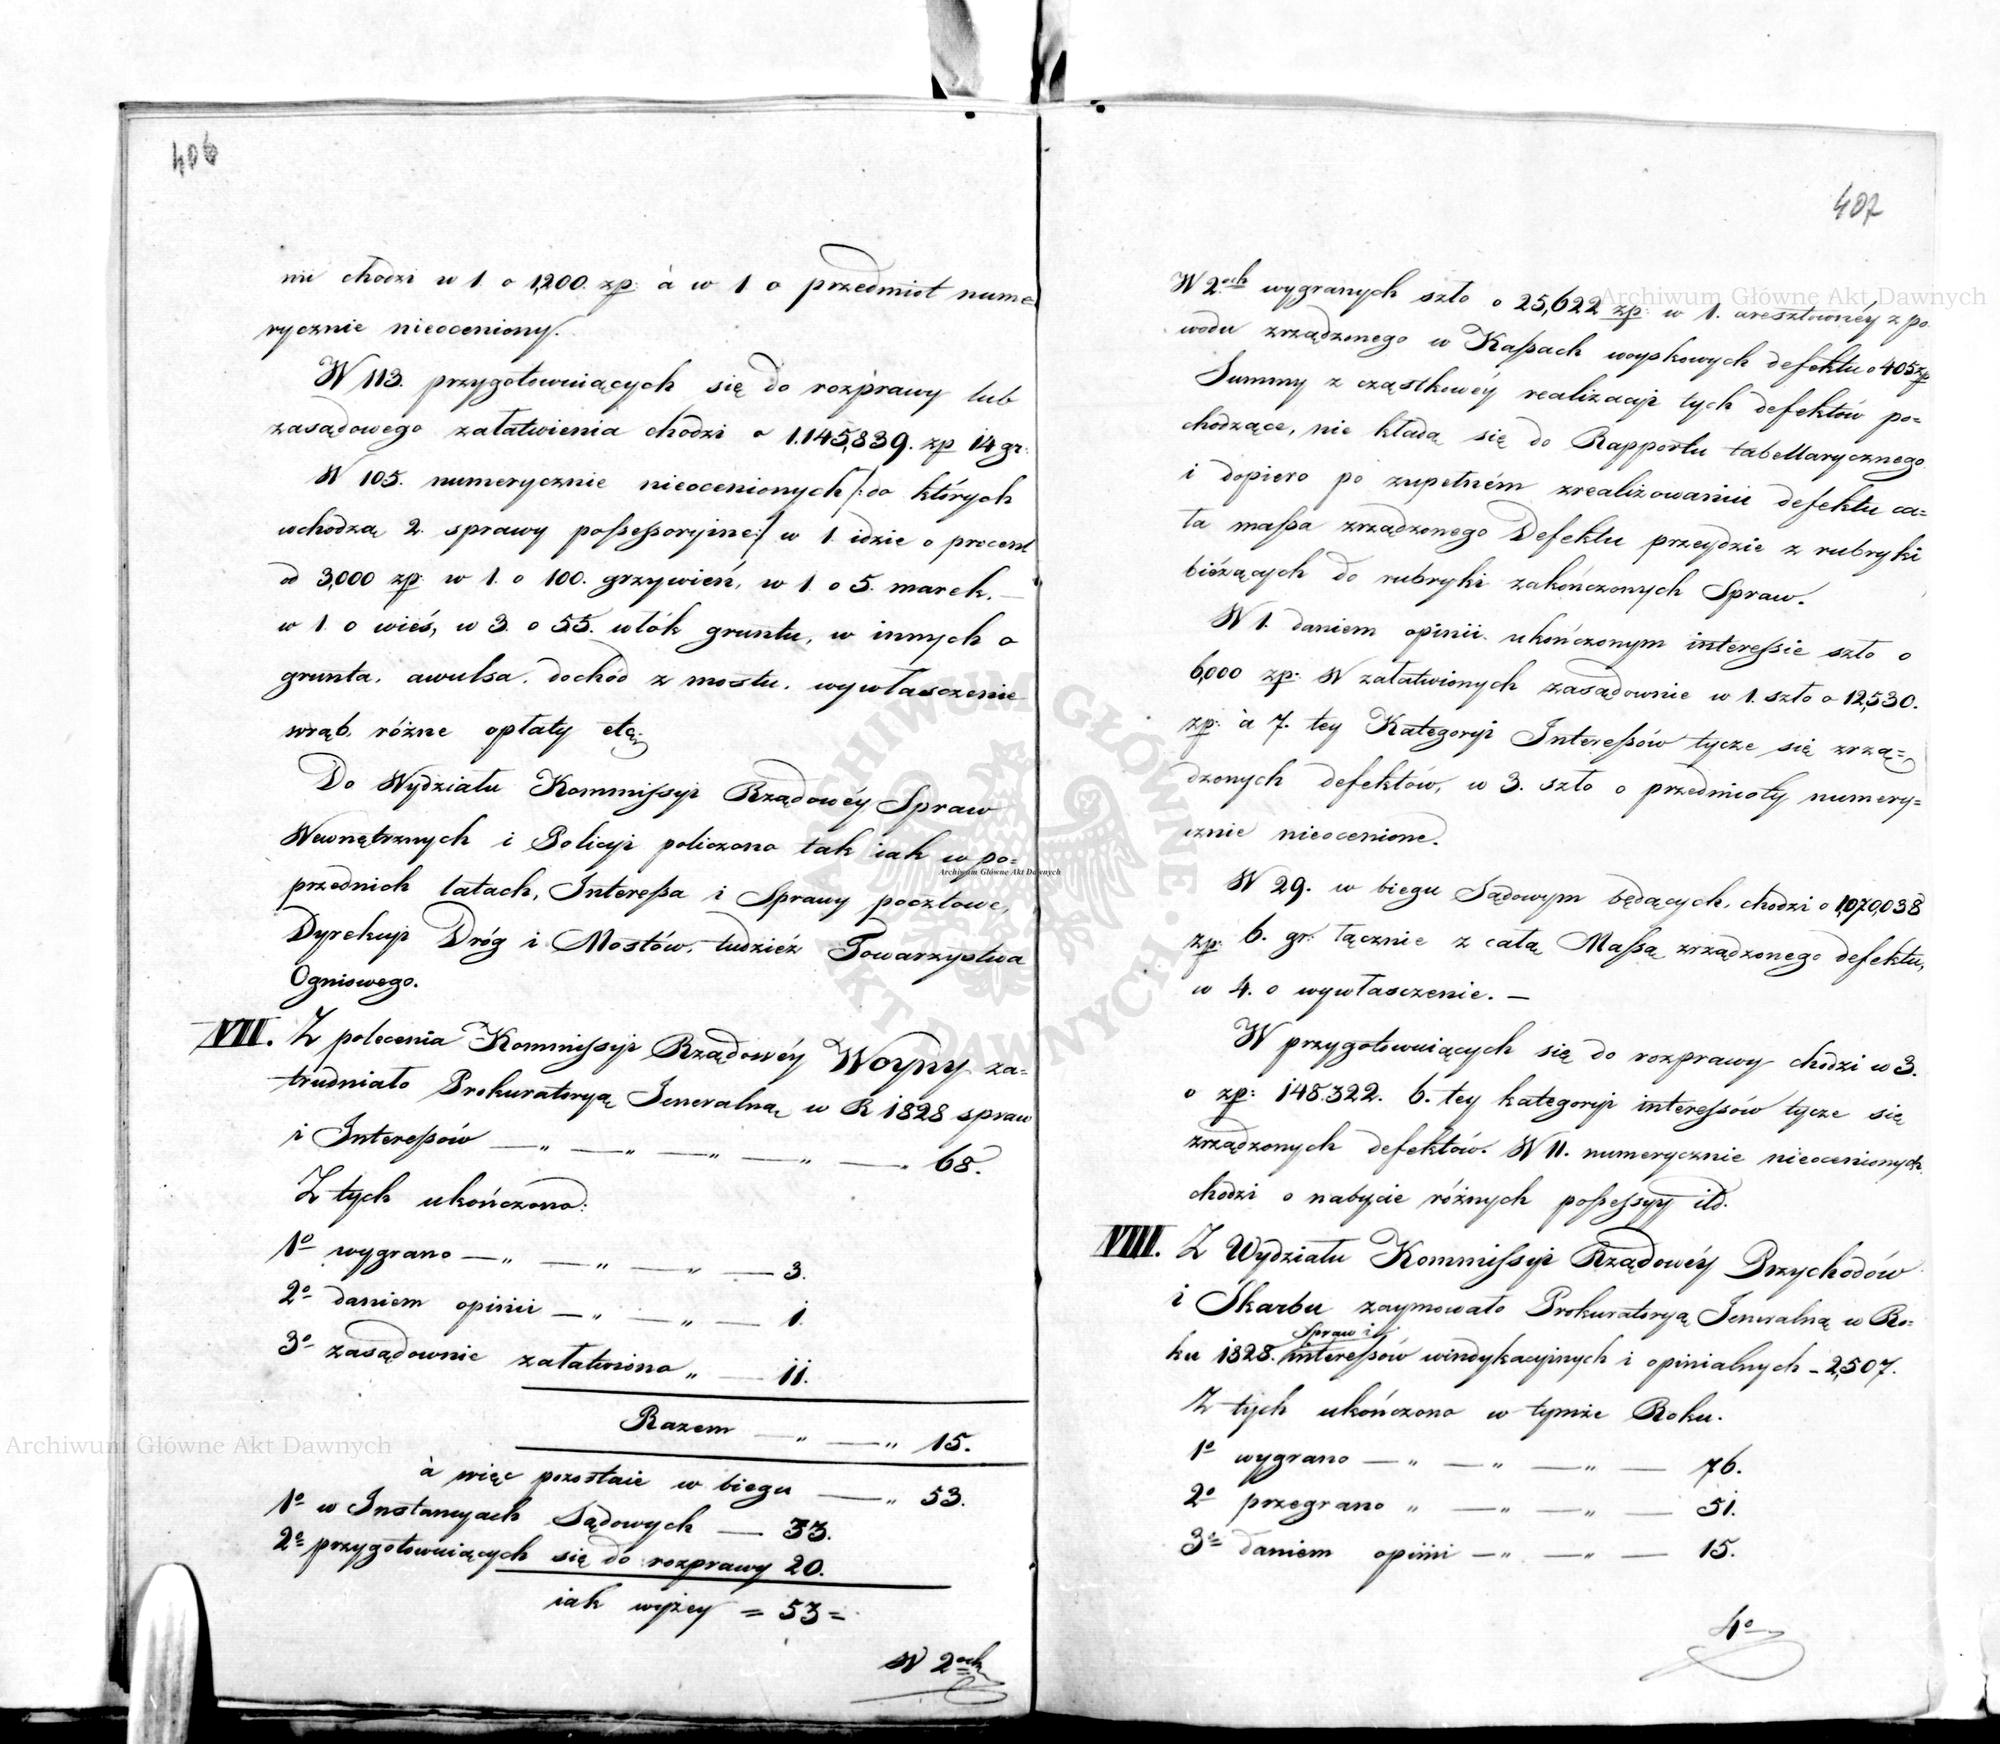 406
nii chodzi w 1. o 1,200. zp: à w 1 o przedmiot nume=
rycznie nieoceniony.
W 113. przygotowuiących się do rozprawy lub
zasądowego załatwienia chodzi o 1.145,839. zp 14 gr:
W 105. numerycznie nieocenionych /:do których
wchodzą 2. sprawy possessoryine:/ w 1. idzie o procent
od 3,000 zp: w 1. o 100. grzywień, w 1. o 5. marek.—
w 1. o wieś, w 3. o 55. włók gruntu, w innych o
grunta, awulsa, dochód z mostu, wywłasczenie
wrąb, różne opłaty etc:
Do Wydziału Kommissyi Rządowéy Spraw
Wewnętrznych i Policyi policzono tak iak w po=
przednich latach, Interessa i Sprawy pocztowe,
Dyrekcyi Dróg i Mostów, tudzież Towarzystwa
Ogniowego.
VII. Z polecenia Kommissyi Rządowéy Woyny za=
trudniało Prokuratoryą Jeneralną w R. 1828 spraw
i Interessów — „ — „ — „ — „ — „ 68.
Z tych ukończono:
1o wygrano — „ — „ — „ — 3.
2o daniem opinii — „ — „ — 1.
3o zasądownie załatwiono „ — 11.
Razem — „ — „ 15.
à więc pozostaie w biegu — „ 53.
1o w Instancyach Sądowych — 33.
2o przygotowuiących się do rozprawy 20.
iak wyżey = 53 =
W 2och
407
W 2och wygranych szło o 25,622 zp: w 1. aresztownéy z po
wodu zrządzonego w Kassach woyskowych defektu o 405 zp
Summy z cząstkowéy realizacyi tych defektów po=
chodzące, nie kładą się do Rapportu tabellarycznego
i dopiero po zupełném zrealizowaniu defektu ca=
ła massa zrządzonego Defektu przeydzie z rubryki
bieżących do rubryki zakończonych Spraw.
W 1. daniem opinii ukończonym interessie szło o
6,000 zp: W załatwionych zasądownie w 1. szło o 12,530.
zp: à 7. tey Kategoryi Interessów tycze się zrzą=
dzonych defektów, w 3. szło o przedmioty numery=
cznie nieocenione.
W 29. w biegu Sądowym będących, chodzi o 1,070,038
zp: 6. gr: łącznie z całą Massą zrządzonego defektu,
w 4. o wywłasczenie. —
W przygotowuiących się do rozprawy chodzi w 3.
o zp: 148.322. 6. tey kategoryi interessów tycze się
zrządzonych defektów. W 11. numerycznie nieocenionych
chodzi o nabycie różnych possessyy itd.
VIII. Z Wydziału Kommissyi Rządowéy Przychodów
i Skarbu zaymowało Prokuratoryą Jeneralną w Ro=
Spraw i
ku 1828. interessów windykacyinych i opinialnych — 2,507.
Z tych ukończono w tymże Roku.
1o wygrano — „ — „ — „ — 76.
2o przegrano „ — „ — „ — 51.
3o daniem opinii — „ — „ — 15.
4o
Archiwum Główne Akt Dawnych
Archiwum Główne Akt Dawnych
Archiwum Główne Akt Dawnych
ARCHIWUM GŁÓWNE AKT DAWNYCH